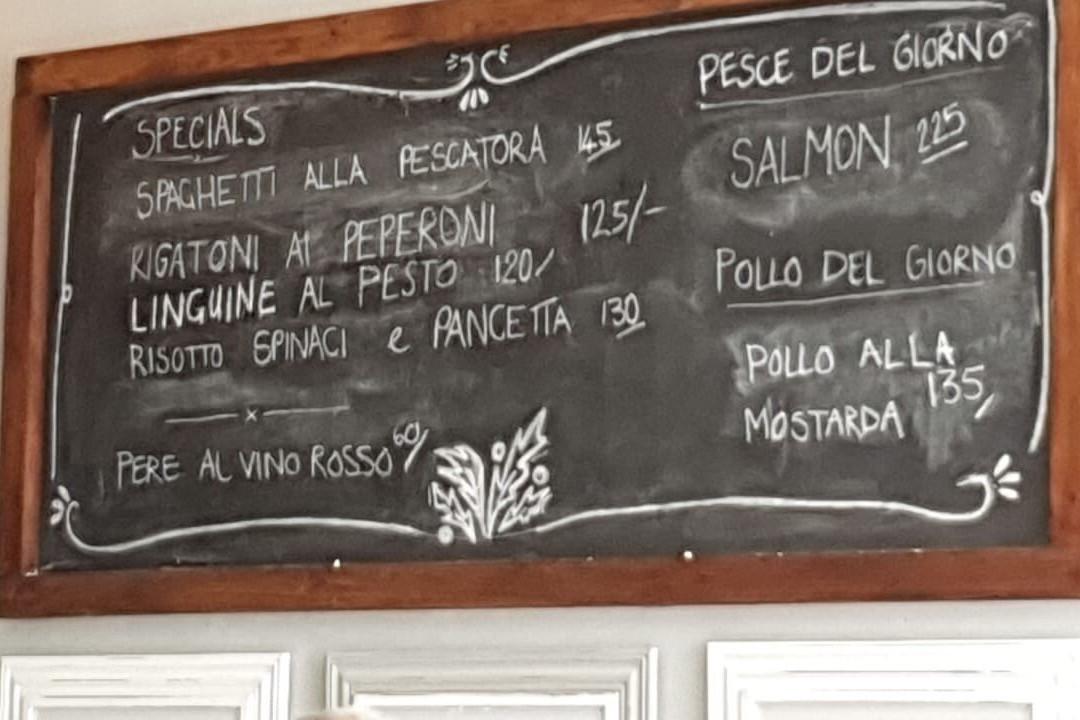 SPECIALS
SPAGHETTI ALLA PESCATORA 145
RIGATONI AI PEPERONI 125/-
LINGUINE AL PESTO 120/
RISOTTO SPINACI e PANCETTA 130
x
PERE AL VINO ROSSO 60/
PESCE DEL GIORNO
SALMON 225
POLLO DEL GIORNO
POLLO ALLA
MOSTARDA 135/